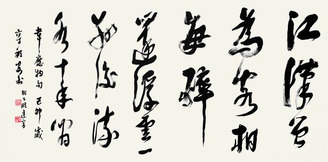 江漢曾
為客相
逢每醉
還浮雲一
別後流
水十年間
韋應物句 己卯歲